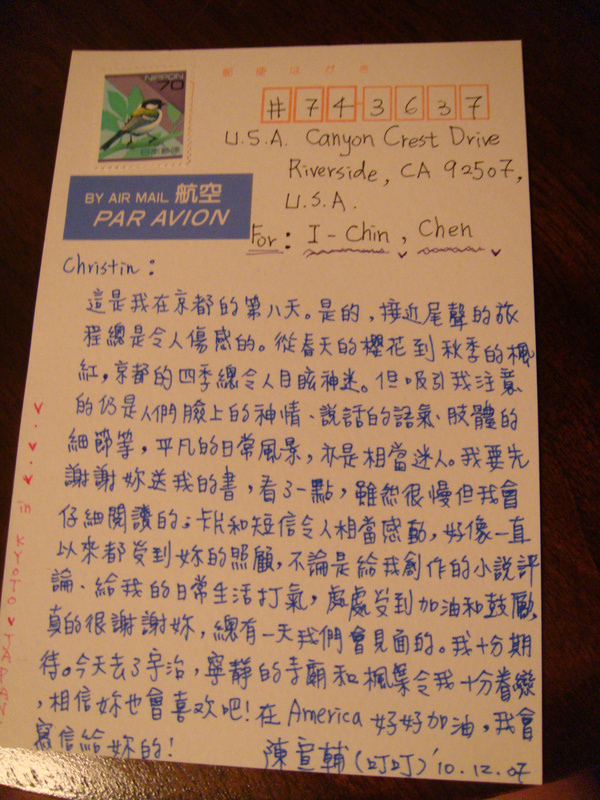 NIPPON
70
日本郵便
郵便はがき
# 7 4 3 6 3 7
U.S.A. Canyon Crest Drive
Riverside, CA 92507,
U.S.A.
BY AIR MAIL 航空
PAR AVION
For: I-Chin, Chen
Christin:
這是我在京都的第八天。是的,接近尾聲的旅
程總是令人傷感的。從春天的櫻花到秋季的楓
紅,京都的四季總令人目眩神迷。但吸引我注意
的仍是人們臉上的神情、說話的語氣、肢體的
細節等,平凡的日常風景,亦是相當迷人。我要先
謝謝妳送我的書,看了一點,雖然很慢但我會
仔細閱讀的;卡片和短信令人相當感動,好像一直
以來都受到妳的照顧,不論是給我創作的小說評
論、給我的日常生活打氣,處處受到加油和鼓勵,
真的很謝謝妳,總有一天我們會見面的。我十分期
待。今天去了宇治,寧靜的寺廟和楓葉令我十分眷戀
,相信妳也會喜欢吧!在America好好加油,我會
寫信給妳的!
陳宣輔(叮叮)'10.12.07
in KYOTO